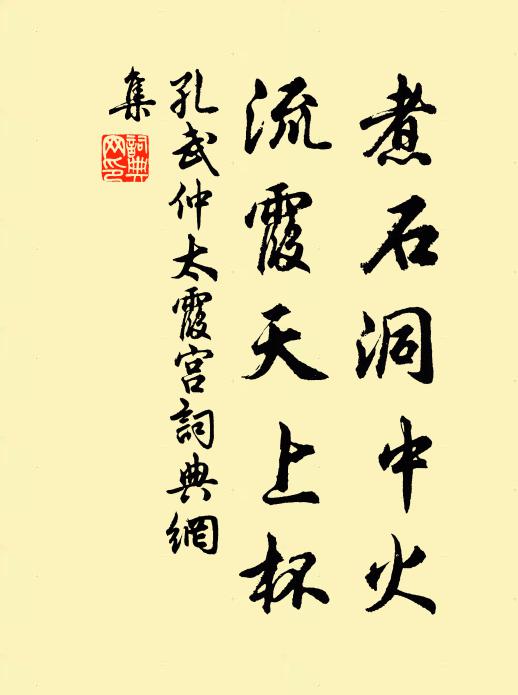 煮石洞中火
流霞天上杯
孔武仲太霞宫詞典網
集
詞典網印